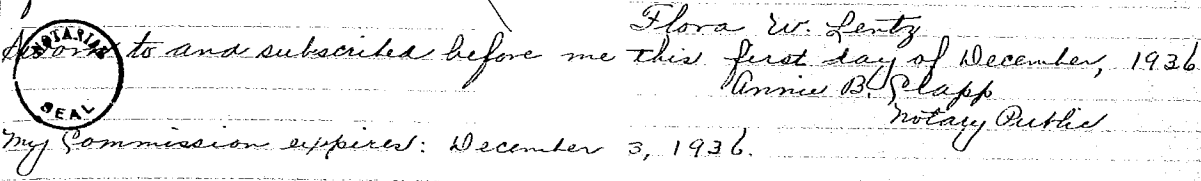 Flora W. Lentz
Sworn to and subscribed before me this first day of December, 1936
Annie B. Clapp
Notary Public
NOTARIAL
SEAL
My Commission expires: December 3, 1936.